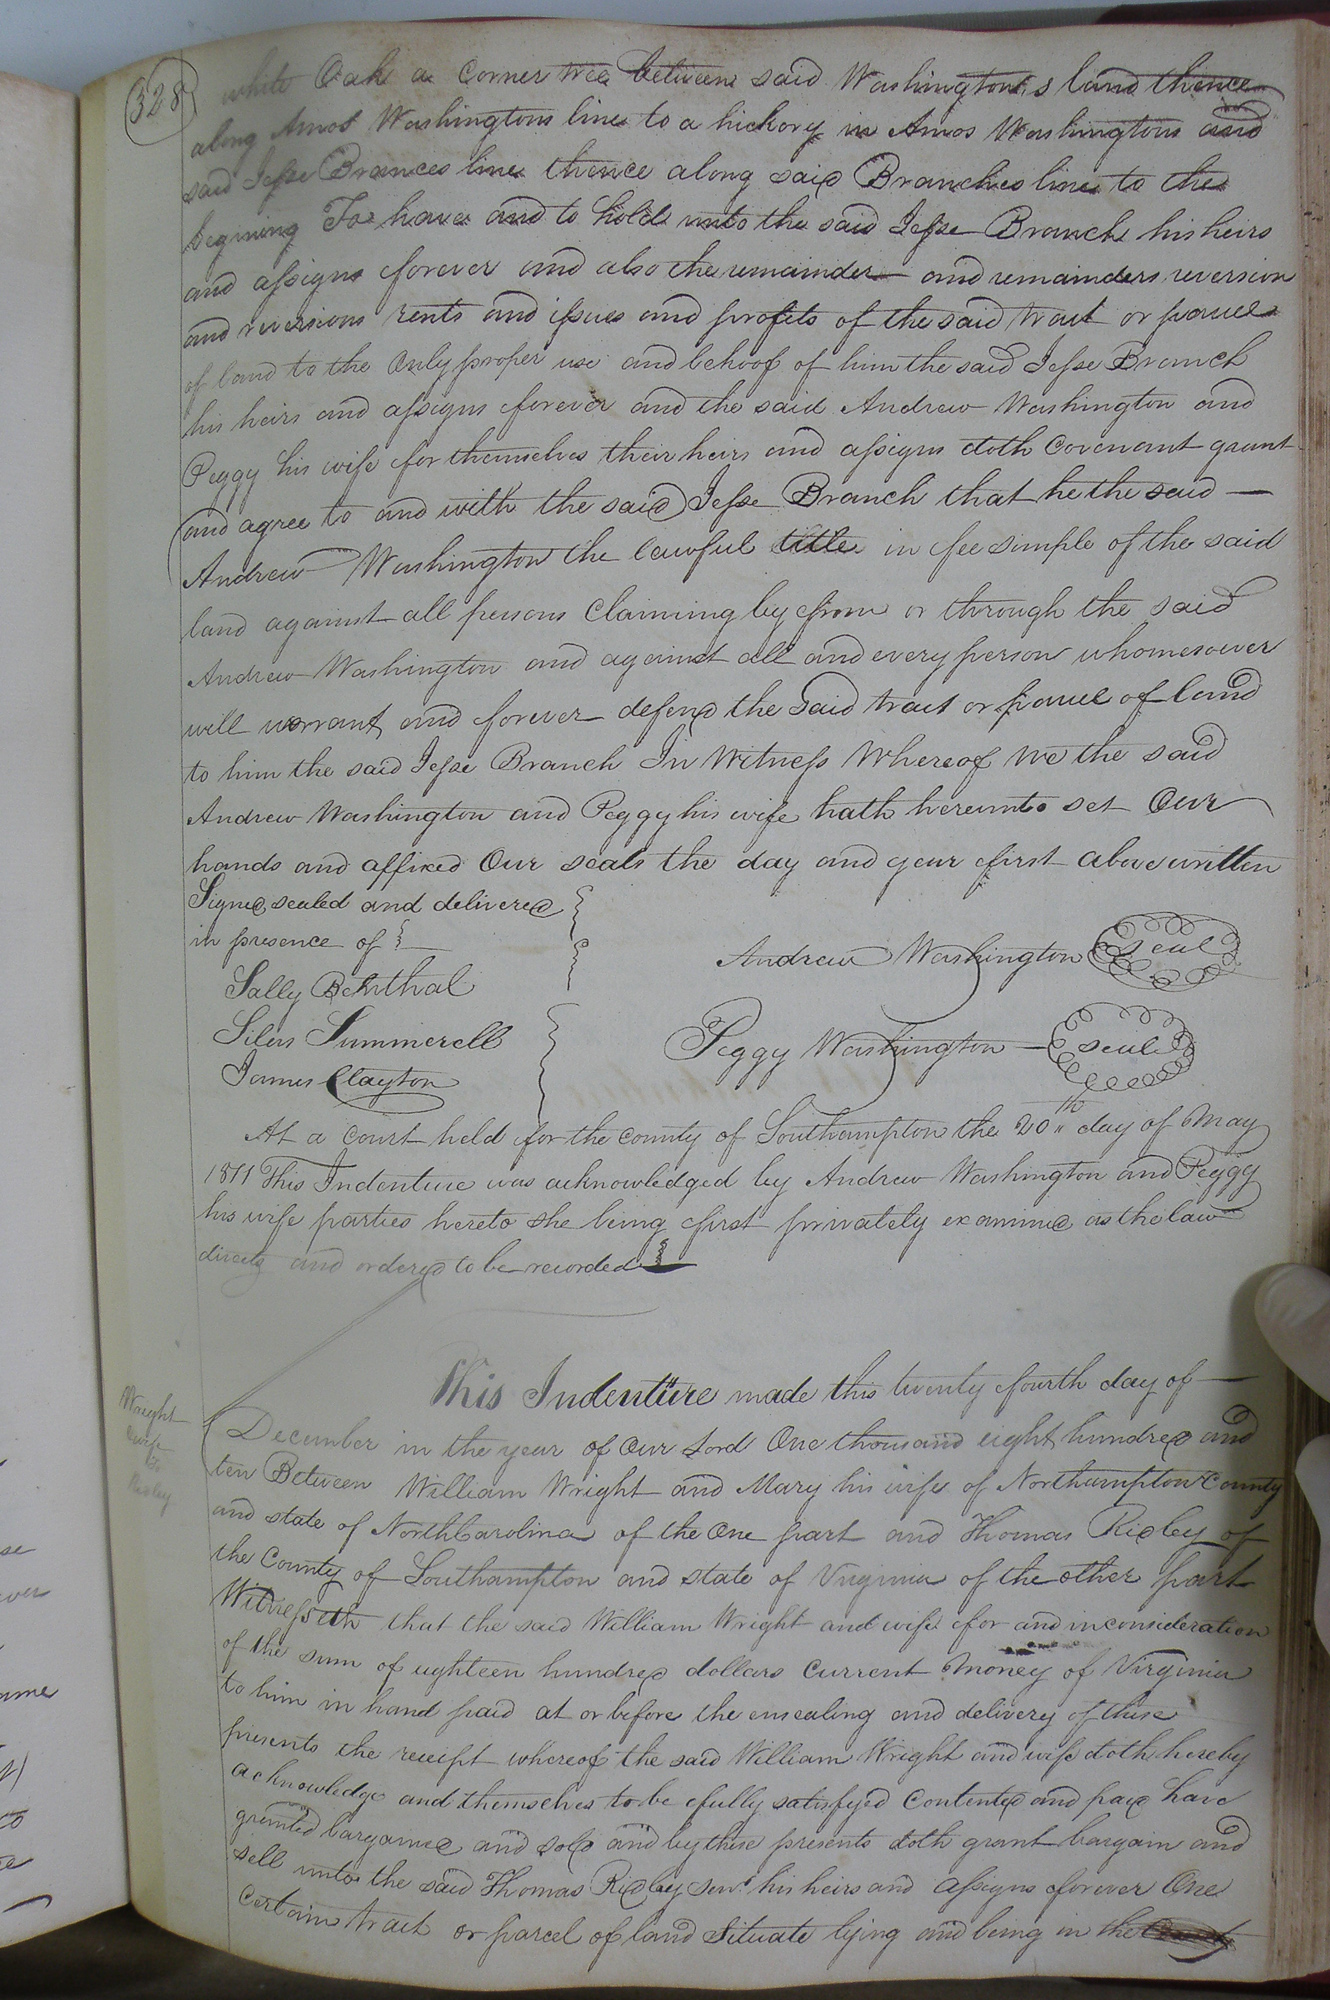 328
white Oak a Corner tree between said Washington,s land thence
along Amos Washingtons line to a hickory in Amos Washingtons and
said Jesse Brances line thence along said Branches line to the
begining To have and to hold unto the said Jesse Branch his heirs
and assigns forever and also the remainder and remainders reversion
and reversions rents and issues and profits of the said tract or parcel
of land to the Only proper use and behoof of him the said Jesse Branch
his heirs and assigns forever and the said Andrew Washington and
Peggy his wife for themselves their heirs and assigns doth Covenant grant
and agree to and with the said Jesse Branch that he the said —
Andrew Washington the lawful title in fee simple of the said
land against all persons Claiming by from or through the said
Andrew Washington and against all and every person whomesoever
will warrant and forever defend the said tract or parcel of land
to him the said Jesse Branch In Witness Whereof We the said
Andrew Washington and Peggy his wife hath hereunto set Our
hands and affixed Our seals the day and year first above written
Signed sealed and delivered
in presence of
Andrew Washington seal
Sally
Silas Summerell
Peggy Washington — seal
James Clayton
At a Court held for the County of Southampton the 20th day of May
1811 This Indenture was acknowledged by Andrew Washington and Peggy
his wife parties hereto she being first privately examined as the law
directs and ordered to be recorded
This Indenture made this twenty fourth day of —
Wright
& wife
to
Ridley
December in the year of Our Lord One thousand eight hundred and
ten Between William Wright and Mary his wife of Northampton County
and state of North Carolina of the One part and Thomas Ridley of
the County of Southampton and state of Virginia of the other part
Witnesseth that the said William Wright and wife for and in consideration
of the sum of eighteen hundred dollars Current Money of Virginia
to him in hand paid at or before the ensealing and delivery of these
presents the receipt whereof the said William Wright and wife doth hereby
acknowledge and themselves to be fully satisfyed Contented and paid have
granted bargained and sold and by these presents doth grant bargain and
sell unto the said Thomas Ridley Senr. his heirs and assigns forever One
Certain tract or parcel of land Situate lying and being in the